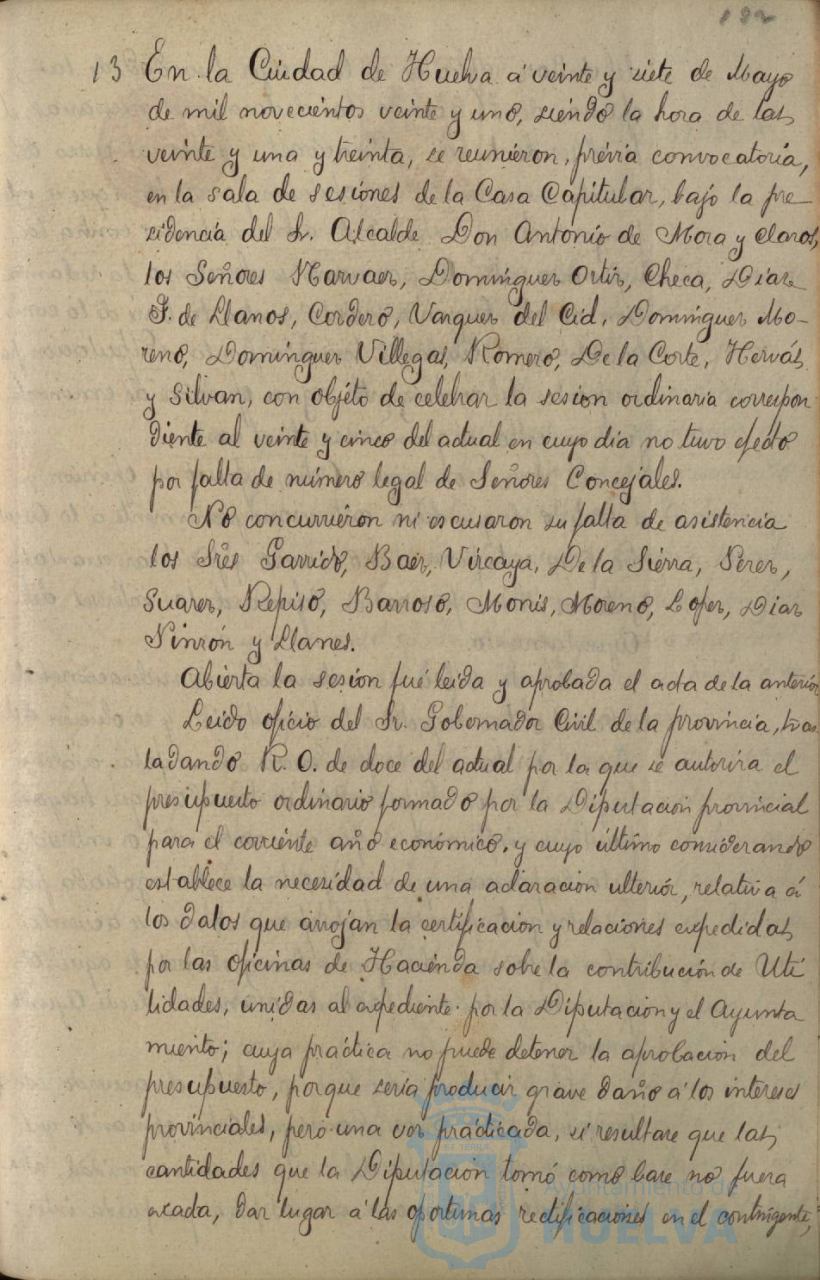 182
13 En la Ciudad de Huelva á veinte y siete de Mayo
de mil novecientos veinte y uno, siendo la hora de las
veinte y una y treinta, se reunieron, prévia convocatoria,
en la sala de sesiones de la Casa Capitular, bajo la pre
sidencia del Sr. Alcalde Don Antonio de Mora y Claros,
los Señores Narvaez, Dominguez Ortiz, Checa, Diaz
F. de Llanos, Cordero, Vazquez del Cid, Dominguez Mo-
reno, Dominguez Villegas, Romero, De la Corte, Hervás
y Silvan, con objéto de celebrar la sesion ordinaria correspon
diente al veinte y cinco del actual en cuyo dia no tuvo efecto
por falta de número legal de Señores Concejales.
No concurrieron ni escusaron su falta de asistencia
los Sres Garrido, Baez, Vizcaya, De la Sierra, Perez,
Suarez, Repiso, Barroso, Monis, Moreno, Lopez, Diaz
Pinzón y Llanes.
Abierta la sesion fué leida y aprobada el acta de la anterior
Leido oficio del Sr. Gobernador Civil de la provincia, tras
ladando R. O. de doce del actual por la que se autoriza el
presupuesto ordinario formado por la Diputacion provincial
para el corriente año económico, y cuyo último considerando
establece la necesidad de una aclaracion ulterior, relativa á
los datos que arrojan la certificacion y relaciones expedidas
por las oficinas de Hacienda sobre la contribución de Uti
lidades, unidas al expediente por la Diputacion y el Ayunta
miento; cuya práctica no puede detener la aprobacion del
presupuesto, porque seria producir grave daño á los intereses
provinciales, pero una vez practicada, si resultare que las
cantidades que la Diputacion tomó como base no fuera
exacta, dar lugar á las oportunas rectificaciones en el contingente,
Ayuntamiento de
HUELVA